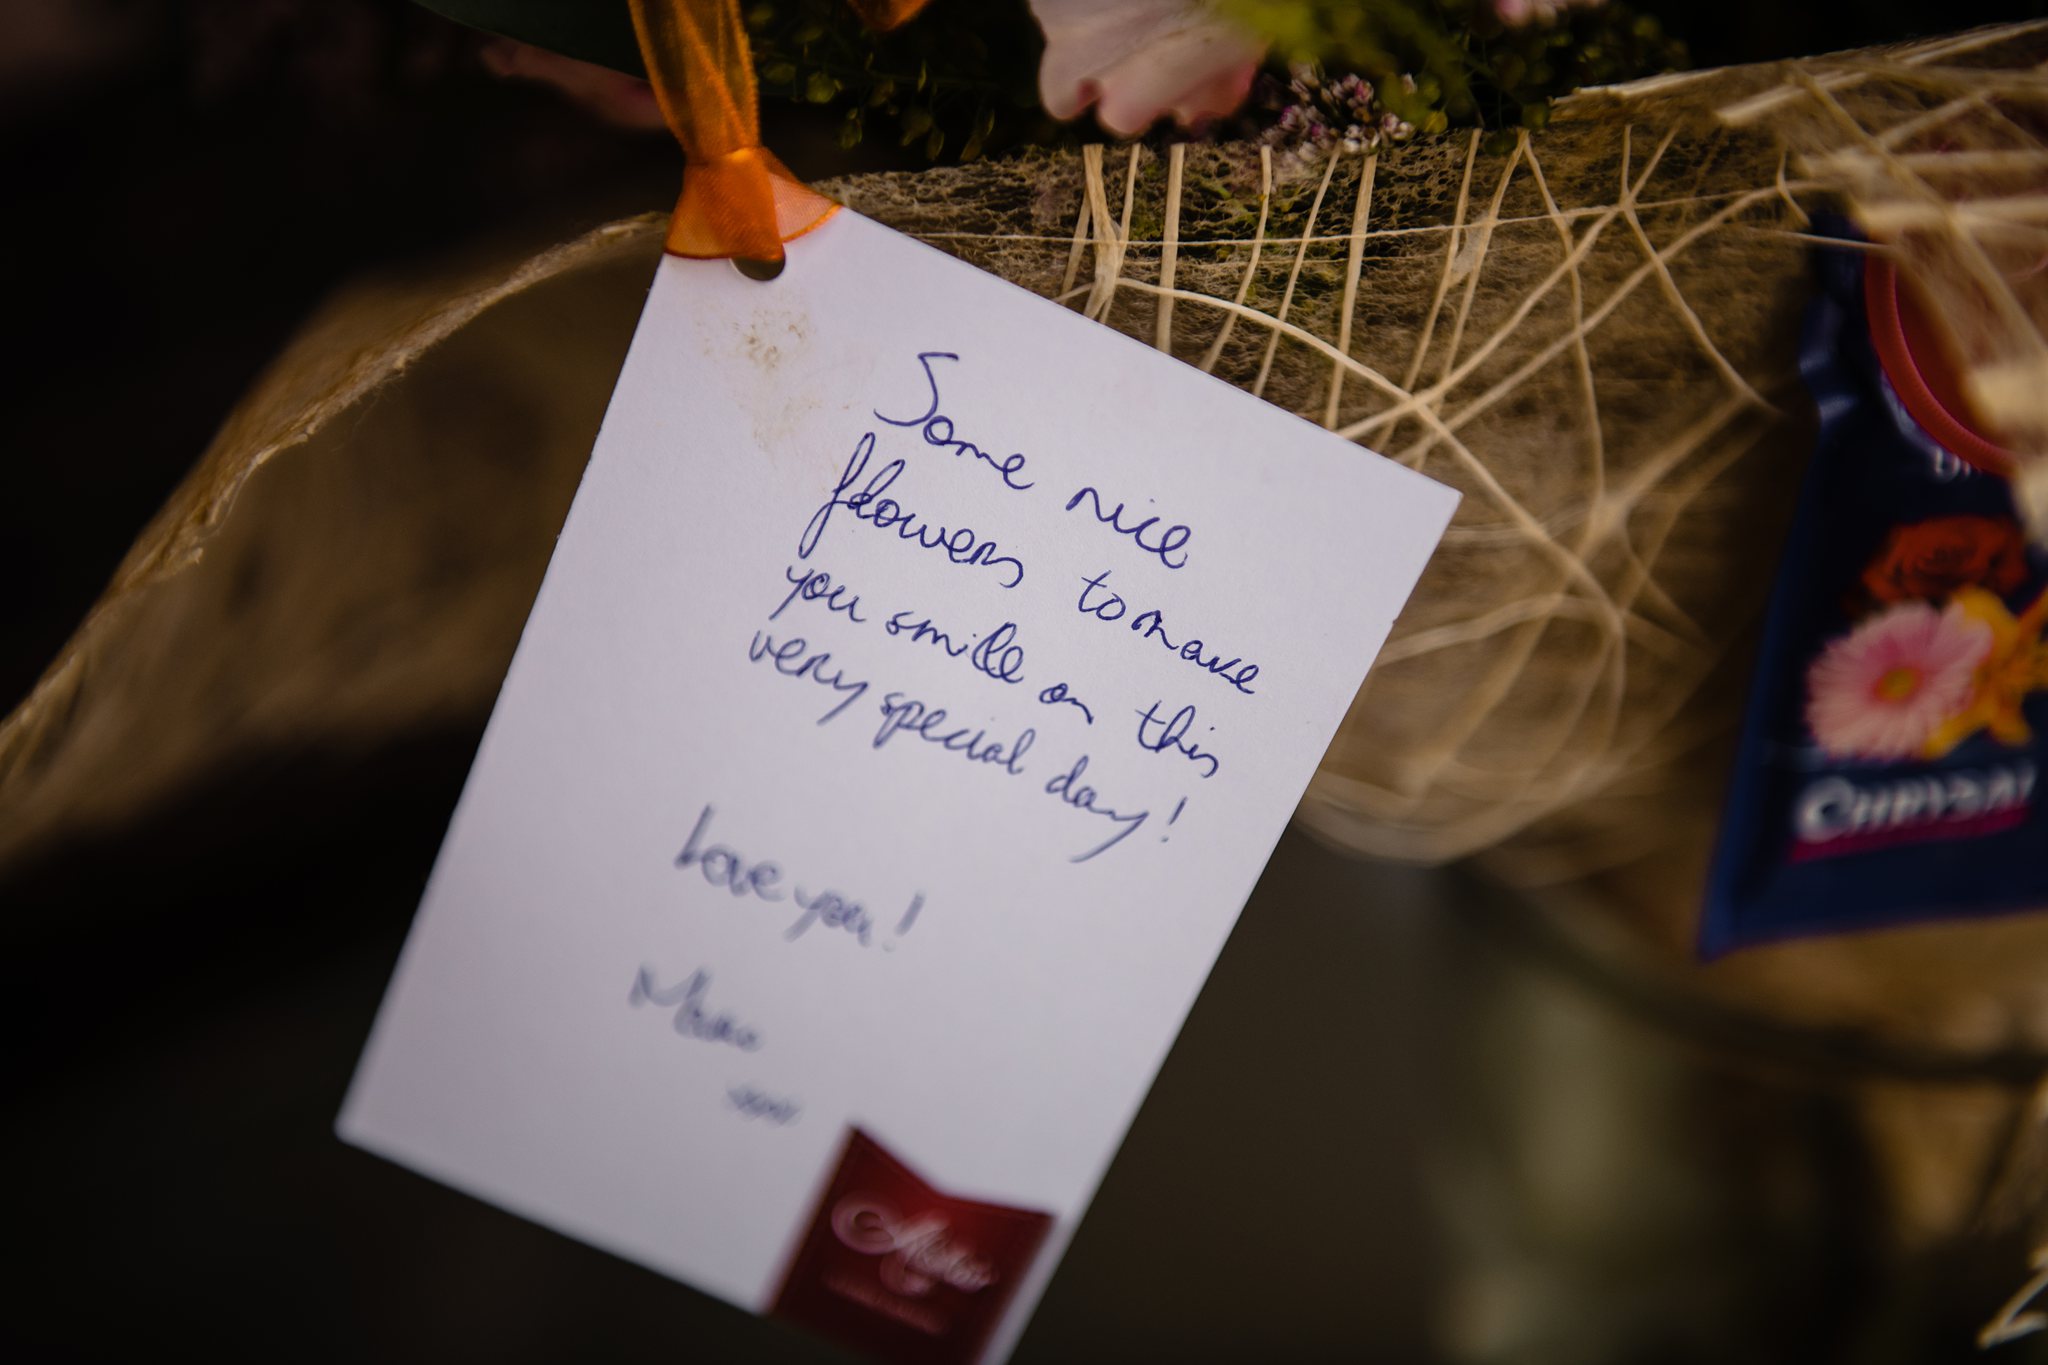 Some nice
flowers to make
you smile on this
very special day!
Love you!
CHRYSAL